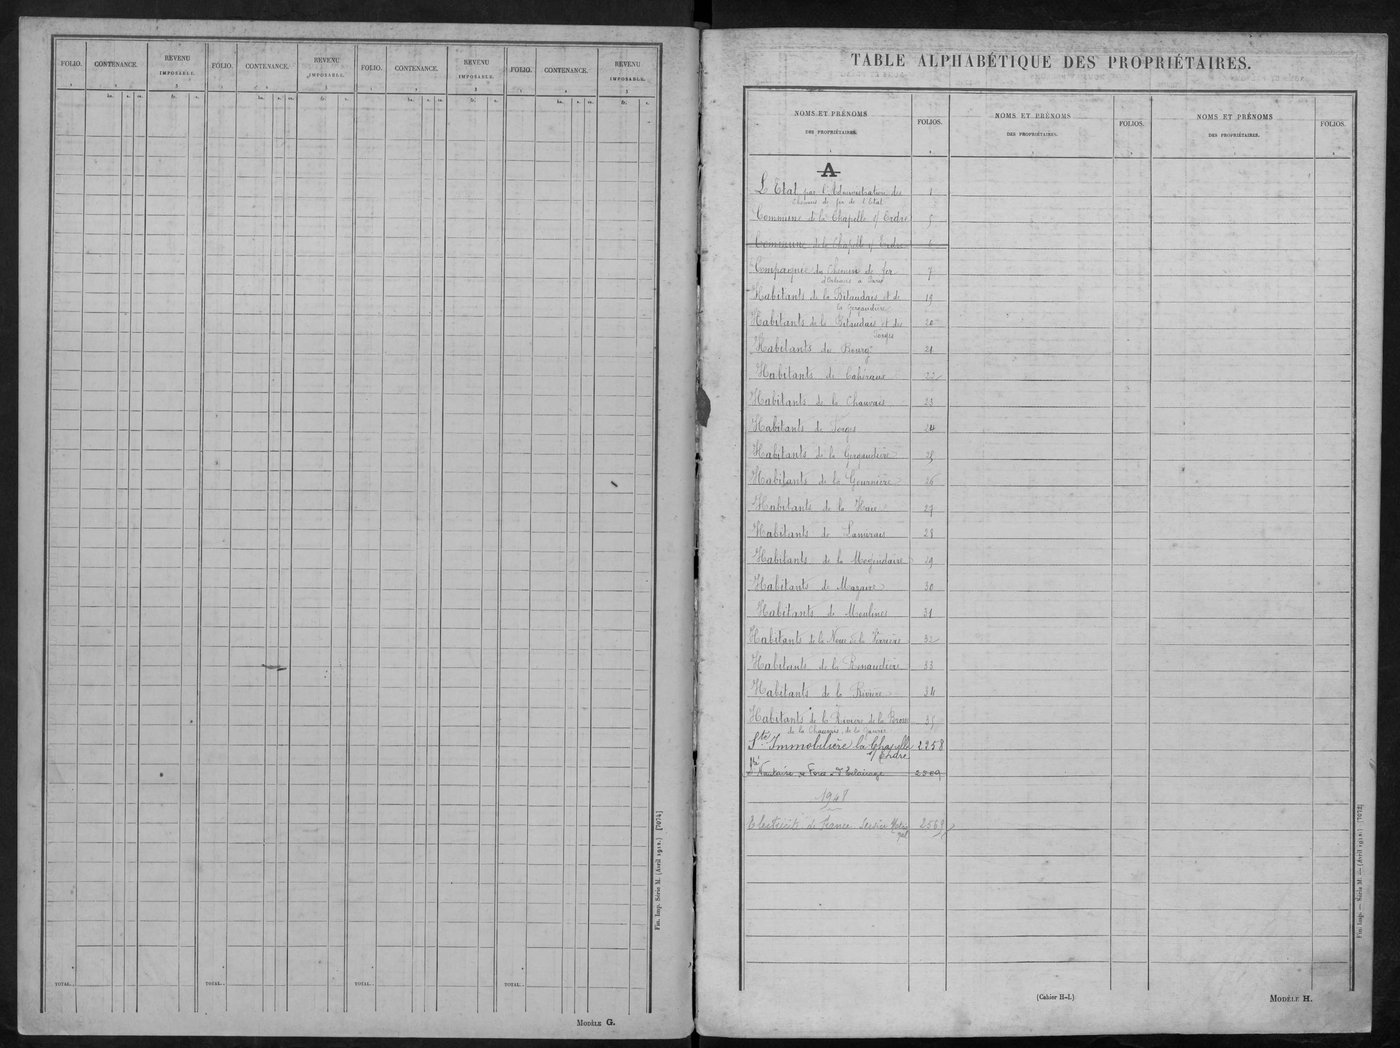 FOLIO. CONTENANCE. REVENU IMPOSABLE. FOLIO. CONTENANCE. REVENU IMPOSABLE. FOLIO. CONTENANCE. REVENU IMPOSABLE. FOLIO. CONTENANCE. REVENU IMPOSABLE.
ha. a. ca. fr. c. ha. a. ca. fr. c. ha. a. ca. fr. c. ha. a. ca. fr. c.
TOTAL. TOTAL. TOTAL. TOTAL.
Fin. Imp. Série M. (Avril 1912.) [7074]
MODÈLE G.
TABLE ALPHABÉTIQUE DES PROPRIÉTAIRES.
NOMS ET PRÉNOMS DES PROPRIÉTAIRES. FOLIOS. NOMS ET PRÉNOMS DES PROPRIÉTAIRES. FOLIOS. NOMS ET PRÉNOMS DES PROPRIÉTAIRES. FOLIOS.
A
L'Etat par l'Administration des 1
Chemins de fer de l'Etat
Commune de la Chapelle s/ Erdre 5
Commune de la Chapelle s/ Erdre 6
Compagnie du Chemin de fer 7
d'Orléans à Paris
Habitants de la Bétaudais et de 19
la Gergaudière
Habitants de la Bétaudais et des 20
Forges
Habitants du Bourg 21
Habitants de Cahéraux 22
Habitants de la Chauvais 23
Habitants de Forges 24
Habitants de la Gergaudière 25
Habitants de la Gournière 26
Habitants de la Haie 27
Habitants de Lamerais 28
Habitants de la Mogendaire 29
Habitants de Mazaire 30
Habitants de Moulines 31
Habitants de la Noue de la Verrière 32
Habitants de la Renaudière 33
Habitants de la Rivière 34
Habitants de la Rivière de la Brosse 35
de la Chauvais, de la
Sté Immobilière la Chapelle 2258
s/ Erdre
Sté Nantaise de Force et d'Eclairage 2509
1948
Electricité de France Service National 2569
(Cahier H-I.)
MODÈLE H.
Fin. Imp. — Série M. — (Avril 1912.) [7072]